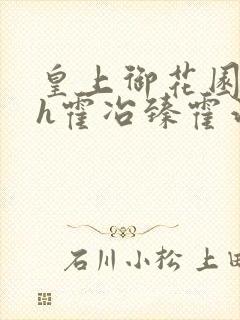 皇上御花园
h霍冶臻霍
石川小松 上田